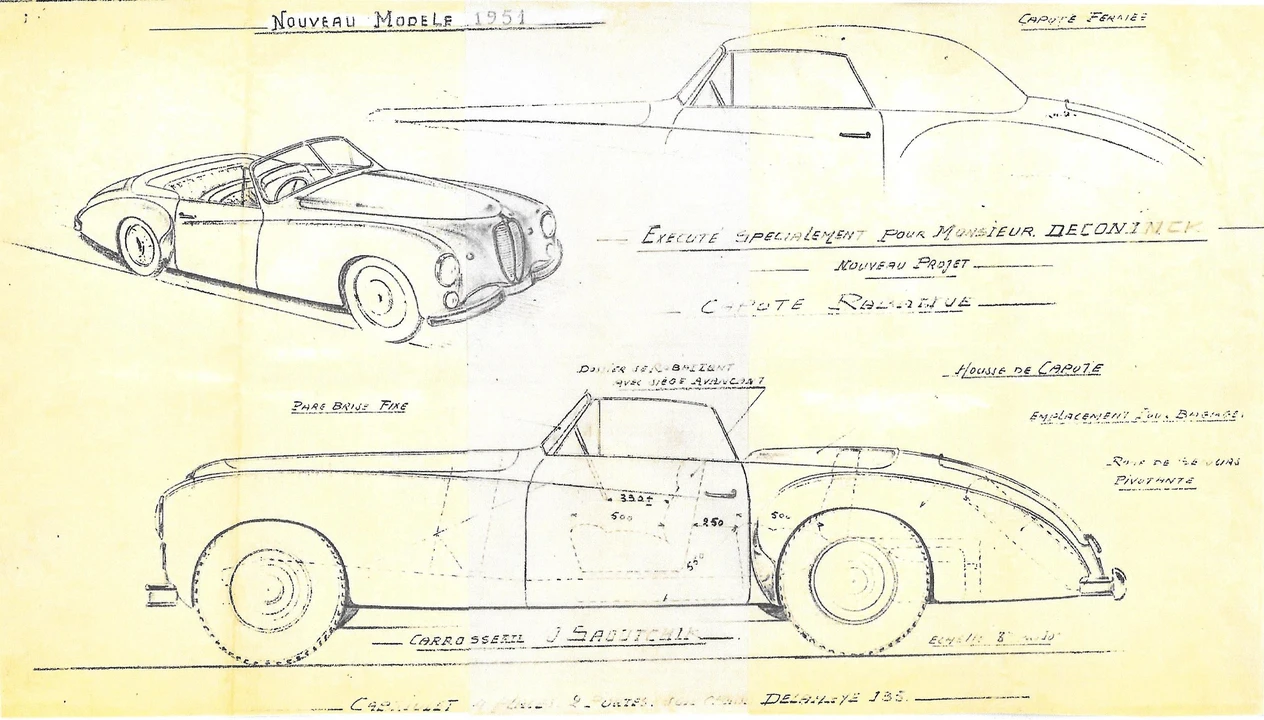 NOUVEAU MODELE 1951
CAPOTE FERMEE
EXECUTÉ SPECIALEMENT POUR MONSIEUR DECONINCK
NOUVEAU PROJET
CAPOTE
DOSSIER SE RABATTANT
AVEC SIÈGE AVANCANT
HOUSSE DE CAPOTE
PARE BRISE FIXE
EMPLACEMENT POUR BAGAGES
ROUE DE SECOURS
PIVOTANTE
500
250
500
CARROSSERIE
CABRIOLET 4 PLACES. 2 PORTES. SUR DELAHAYE 135.